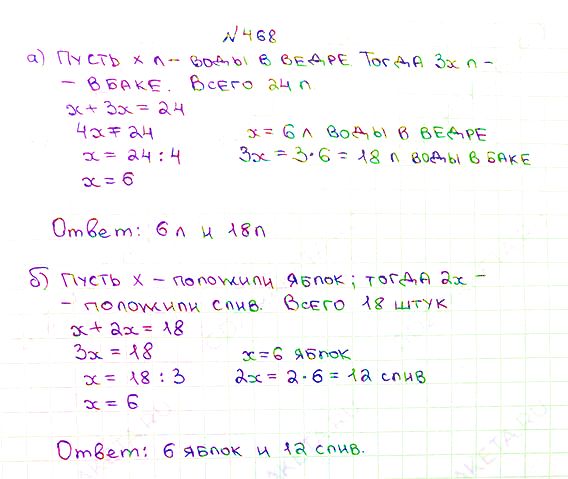 №468
а) Пусть x л - воды в ведре. Тогда 3x л -
- в баке. Всего 24 л
x + 3x = 24
4x = 24 x = 6 л воды в ведре
x = 24 : 4 3x = 3·6 = 18 л воды в баке
x = 6
Ответ: 6 л и 18 л
б) Пусть x - положили яблок; тогда 2x -
- положили слив. Всего 18 штук
x + 2x = 18
3x = 18 x = 6 яблок
x = 18 : 3 2x = 2·6 = 12 слив
x = 6
Ответ: 6 яблок и 12 слив.